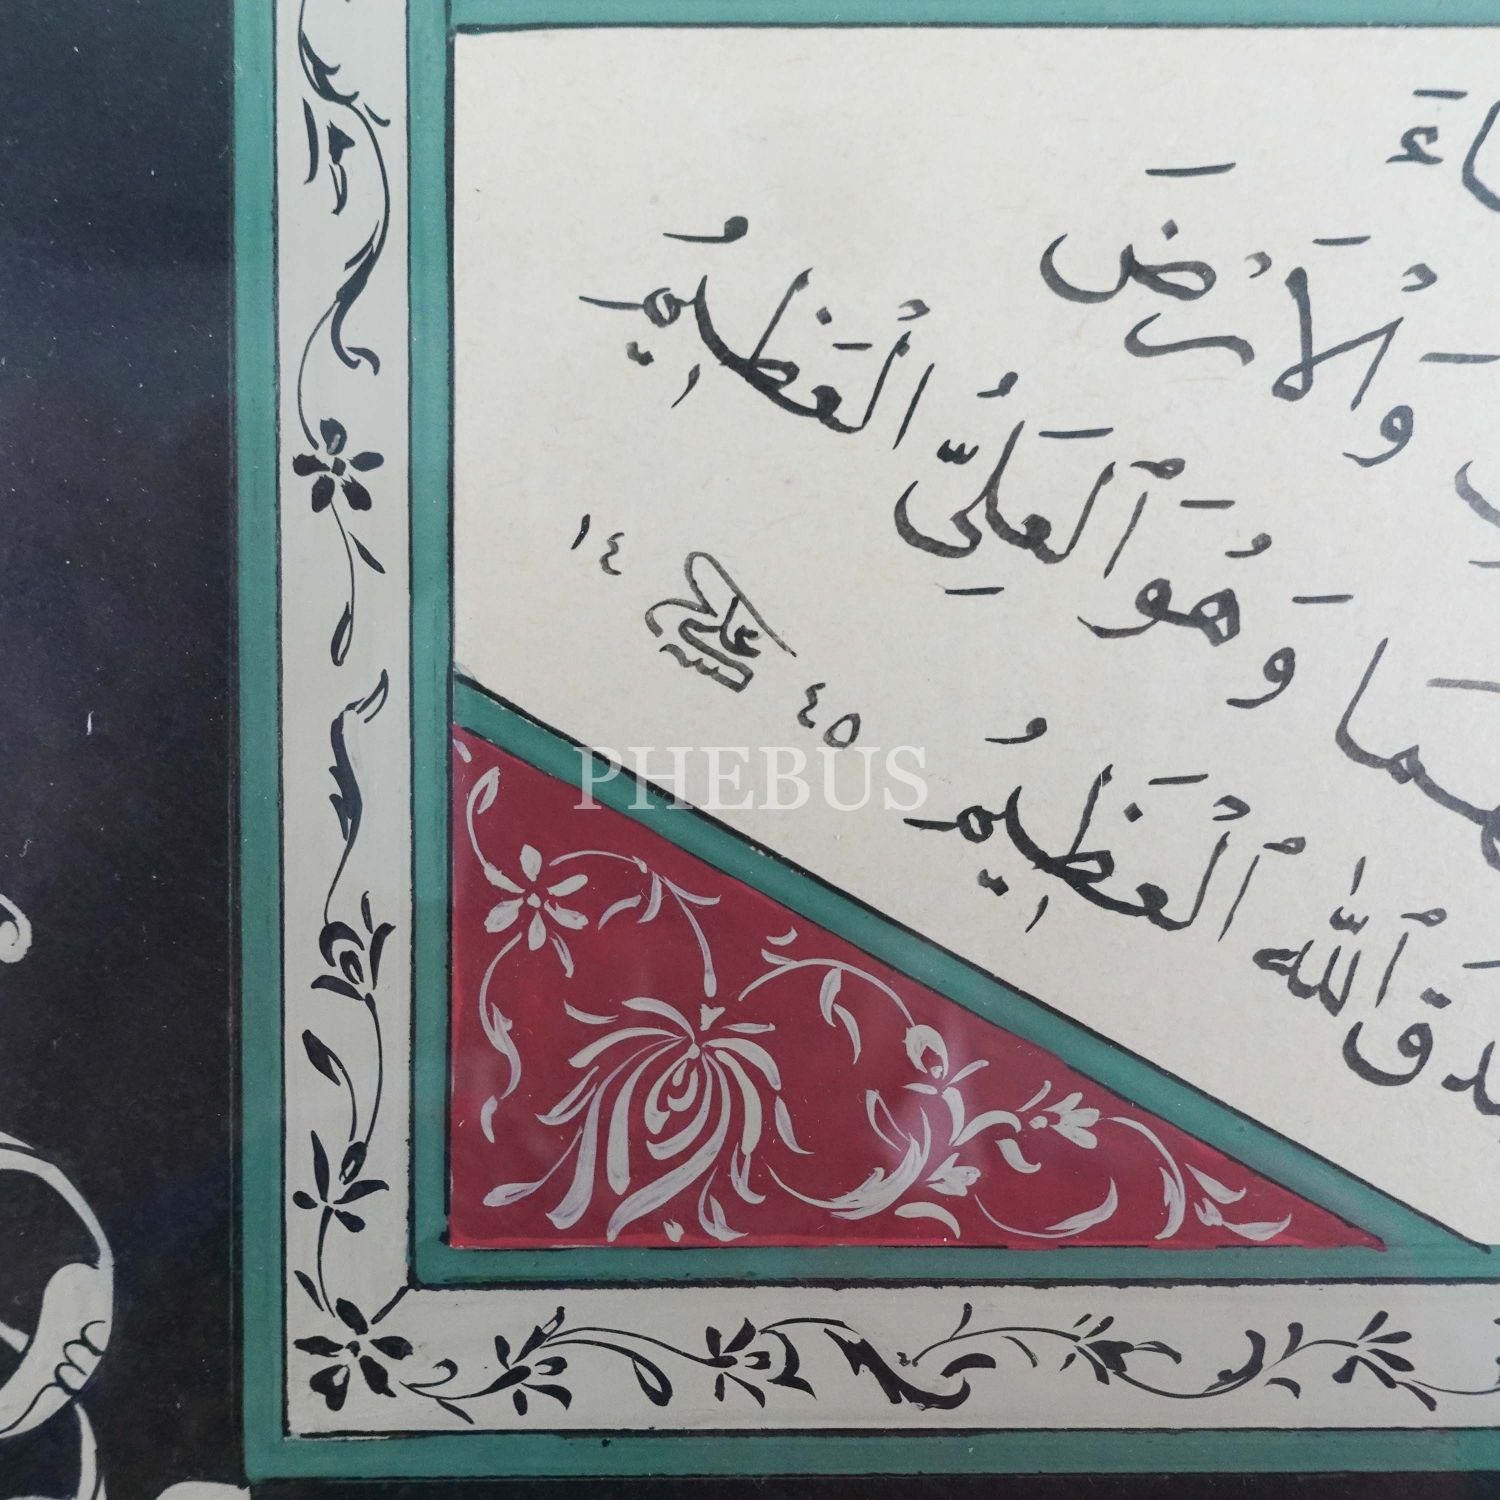 شَاءَ
وَٱلْأَرْضَ
هُمَا وَهُوَ ٱلْعَلِيُّ ٱلْعَظِيمُ
صَدَقَ ٱللّٰهُ ٱلْعَظِيمُ
١٤ ٤٥
PHEBUS